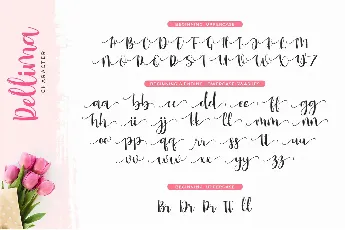 Dellima
CHARACTER
BEGINNING UPPERCASE
A B C D E F G H I J K L M
N O P Q R S T U V W X Y Z
aa bb cc dd ee ff gg
hh ii jj kk ll mm nn
oo pp qq rr ss tt uu
vv ww xx yy zz
BEGINNING UPPERCASE
Br Dr